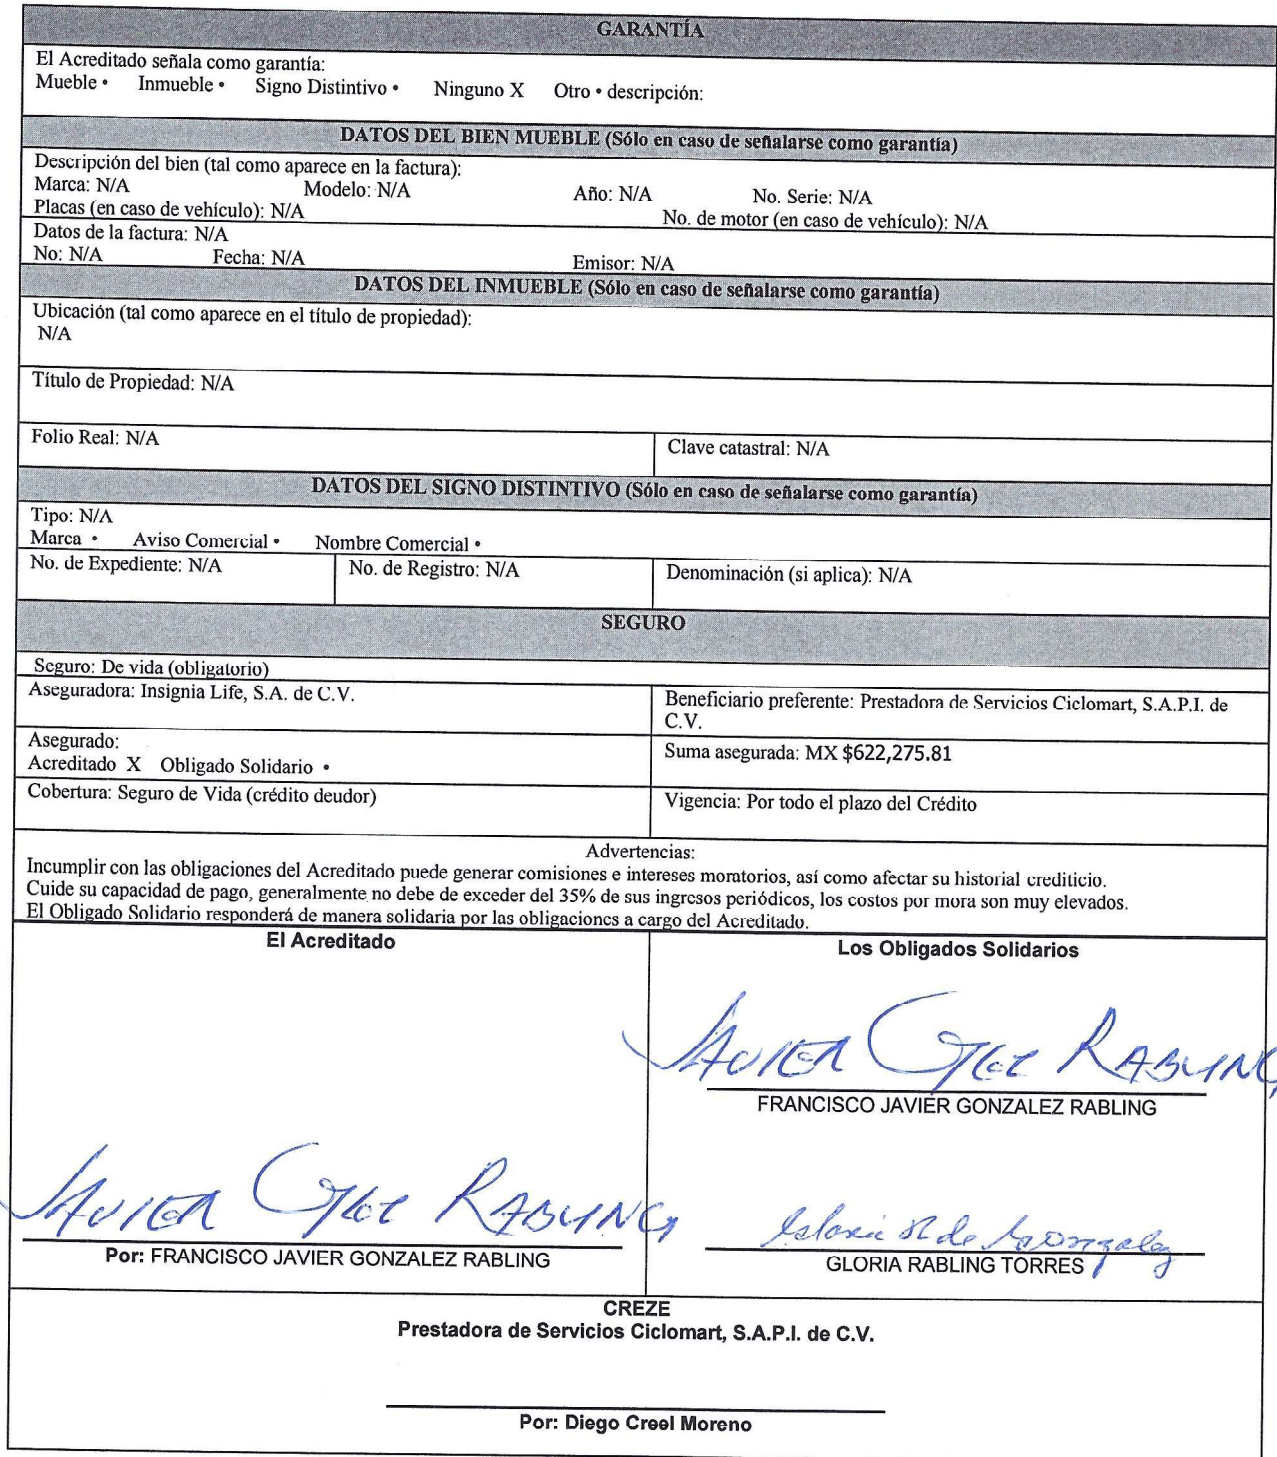 GARANTÍA
El Acreditado señala como garantía:
Mueble • Inmueble • Signo Distintivo • Ninguno X Otro • descripción:
DATOS DEL BIEN MUEBLE (Sólo en caso de señalarse como garantía)
Descripción del bien (tal como aparece en la factura):
Marca: N/A Modelo: N/A Año: N/A No. Serie: N/A
Placas (en caso de vehículo): N/A No. de motor (en caso de vehículo): N/A
Datos de la factura: N/A
No: N/A Fecha: N/A Emisor: N/A
DATOS DEL INMUEBLE (Sólo en caso de señalarse como garantía)
Ubicación (tal como aparece en el título de propiedad):
N/A
Título de Propiedad: N/A
Folio Real: N/A Clave catastral: N/A
DATOS DEL SIGNO DISTINTIVO (Sólo en caso de señalarse como garantía)
Tipo: N/A
Marca • Aviso Comercial • Nombre Comercial •
No. de Expediente: N/A No. de Registro: N/A Denominación (si aplica): N/A
SEGURO
Seguro: De vida (obligatorio)
Aseguradora: Insignia Life, S.A. de C.V.
Beneficiario preferente: Prestadora de Servicios Ciclomart, S.A.P.I. de
C.V.
Asegurado:
Acreditado X Obligado Solidario •
Suma asegurada: MX $622,275.81
Cobertura: Seguro de Vida (crédito deudor)
Vigencia: Por todo el plazo del Crédito
Advertencias:
Incumplir con las obligaciones del Acreditado puede generar comisiones e intereses moratorios, así como afectar su historial crediticio.
Cuide su capacidad de pago, generalmente no debe de exceder del 35% de sus ingresos periódicos, los costos por mora son muy elevados.
El Obligado Solidario responderá de manera solidaria por las obligaciones a cargo del Acreditado.
El Acreditado
JAVIER RABLING
Por: FRANCISCO JAVIER GONZALEZ RABLING
Los Obligados Solidarios
JAVIER RABLING
FRANCISCO JAVIER GONZALEZ RABLING
Gloria R de Gonzalez
GLORIA RABLING TORRES
CREZE
Prestadora de Servicios Ciclomart, S.A.P.I. de C.V.
Por: Diego Creel Moreno